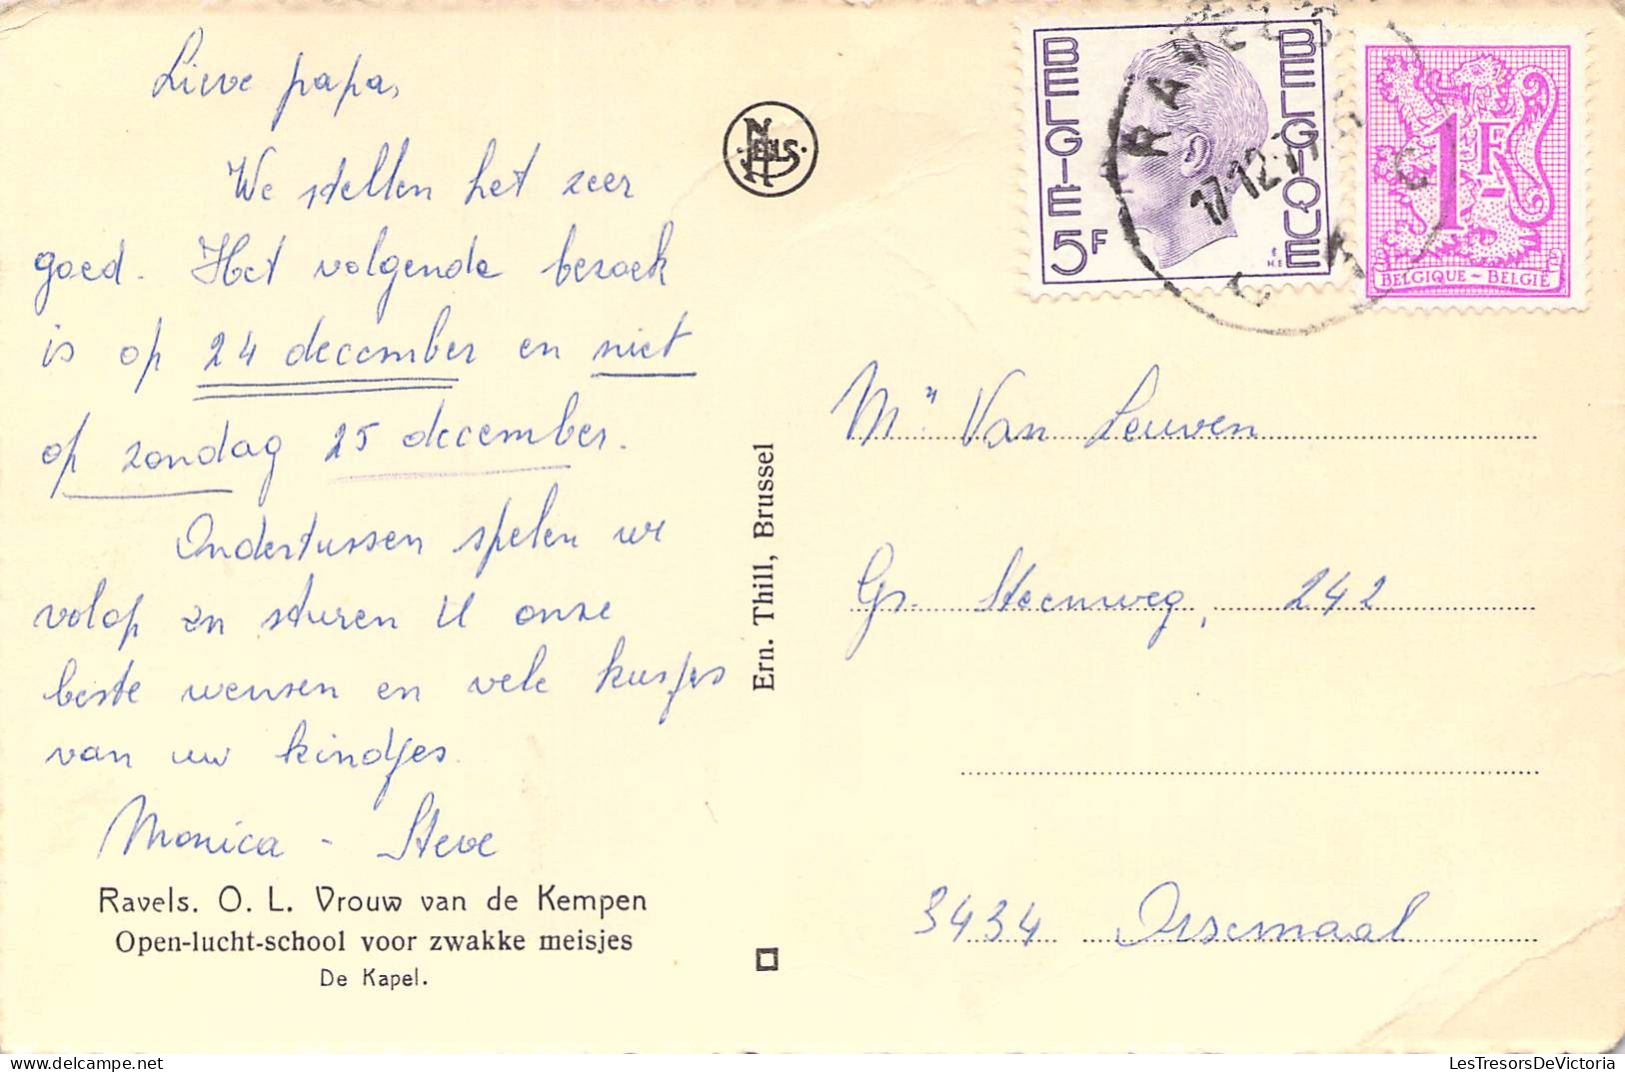 Lieve papa,
We stellen het zeer
goed. Het volgende bezoek
is op 24 december en niet
op zondag 25 december.
Ondertussen spelen we
volop en sturen U onze
beste wensen en vele kusjes
van uw kindjes.
Monica - Steve
Ravels. O. L. Vrouw van de Kempen
Open-lucht-school voor zwakke meisjes
De Kapel.
NELS
Ern. Thill, Brussel
BELGIE 5F
BELGIQUE
RAVELS
17-12
1F
BELGIQUE - BELGIË
Mr Van Leuven
Gr. Steenweg, 242
3434 Orsmaal
LesTresorsDeVictoria